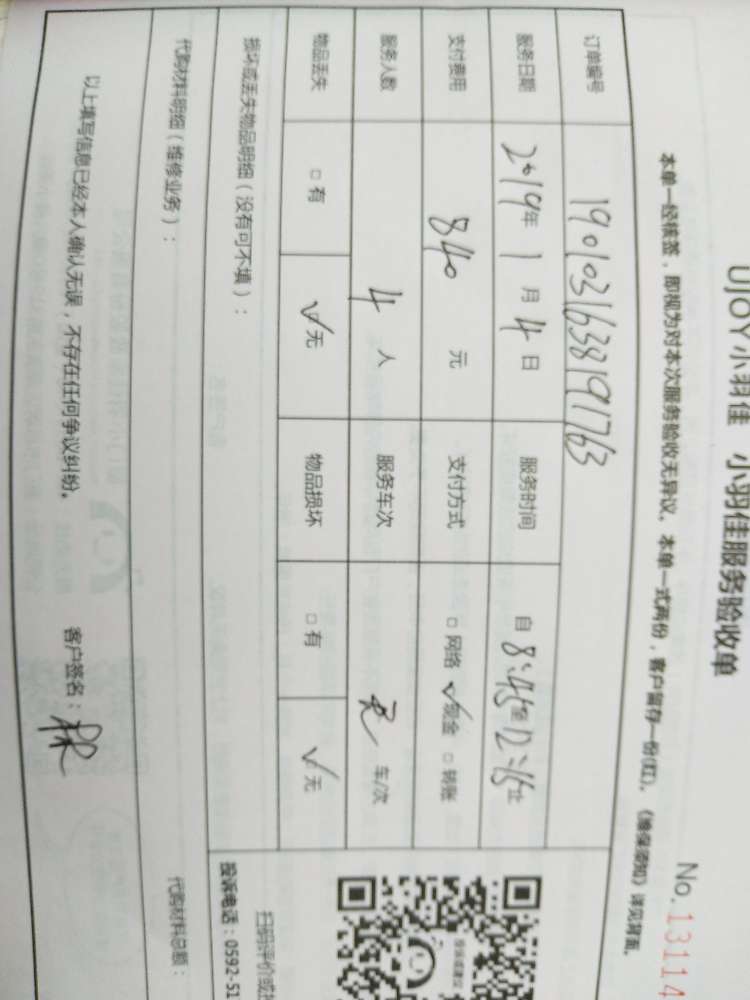 UJOY小羽佳 小羽佳服务验收单
No.13114
本单一经核签，即视为对本次服务验收无异议。本单一式两份，客户留存一份(红)。《维保须知》详见背面。
订单编号 1901031638191763
服务日期 2019年1月4日 服务时间 自8:45至12:15止
支付费用 840元 支付方式 □网络 √现金 □转账
服务人数 4人 服务车次 无 车/次
物品丢失 □有 √无 物品损坏 □有 √无
损坏或丢失物品明细（没有可不填）：
扫码评价或投
投诉电话：0592-51
代购材料明细（维修业务）： 代购材料总额：
以上填写信息已经本人确认无误，不存在任何争议纠纷。 客户签名：